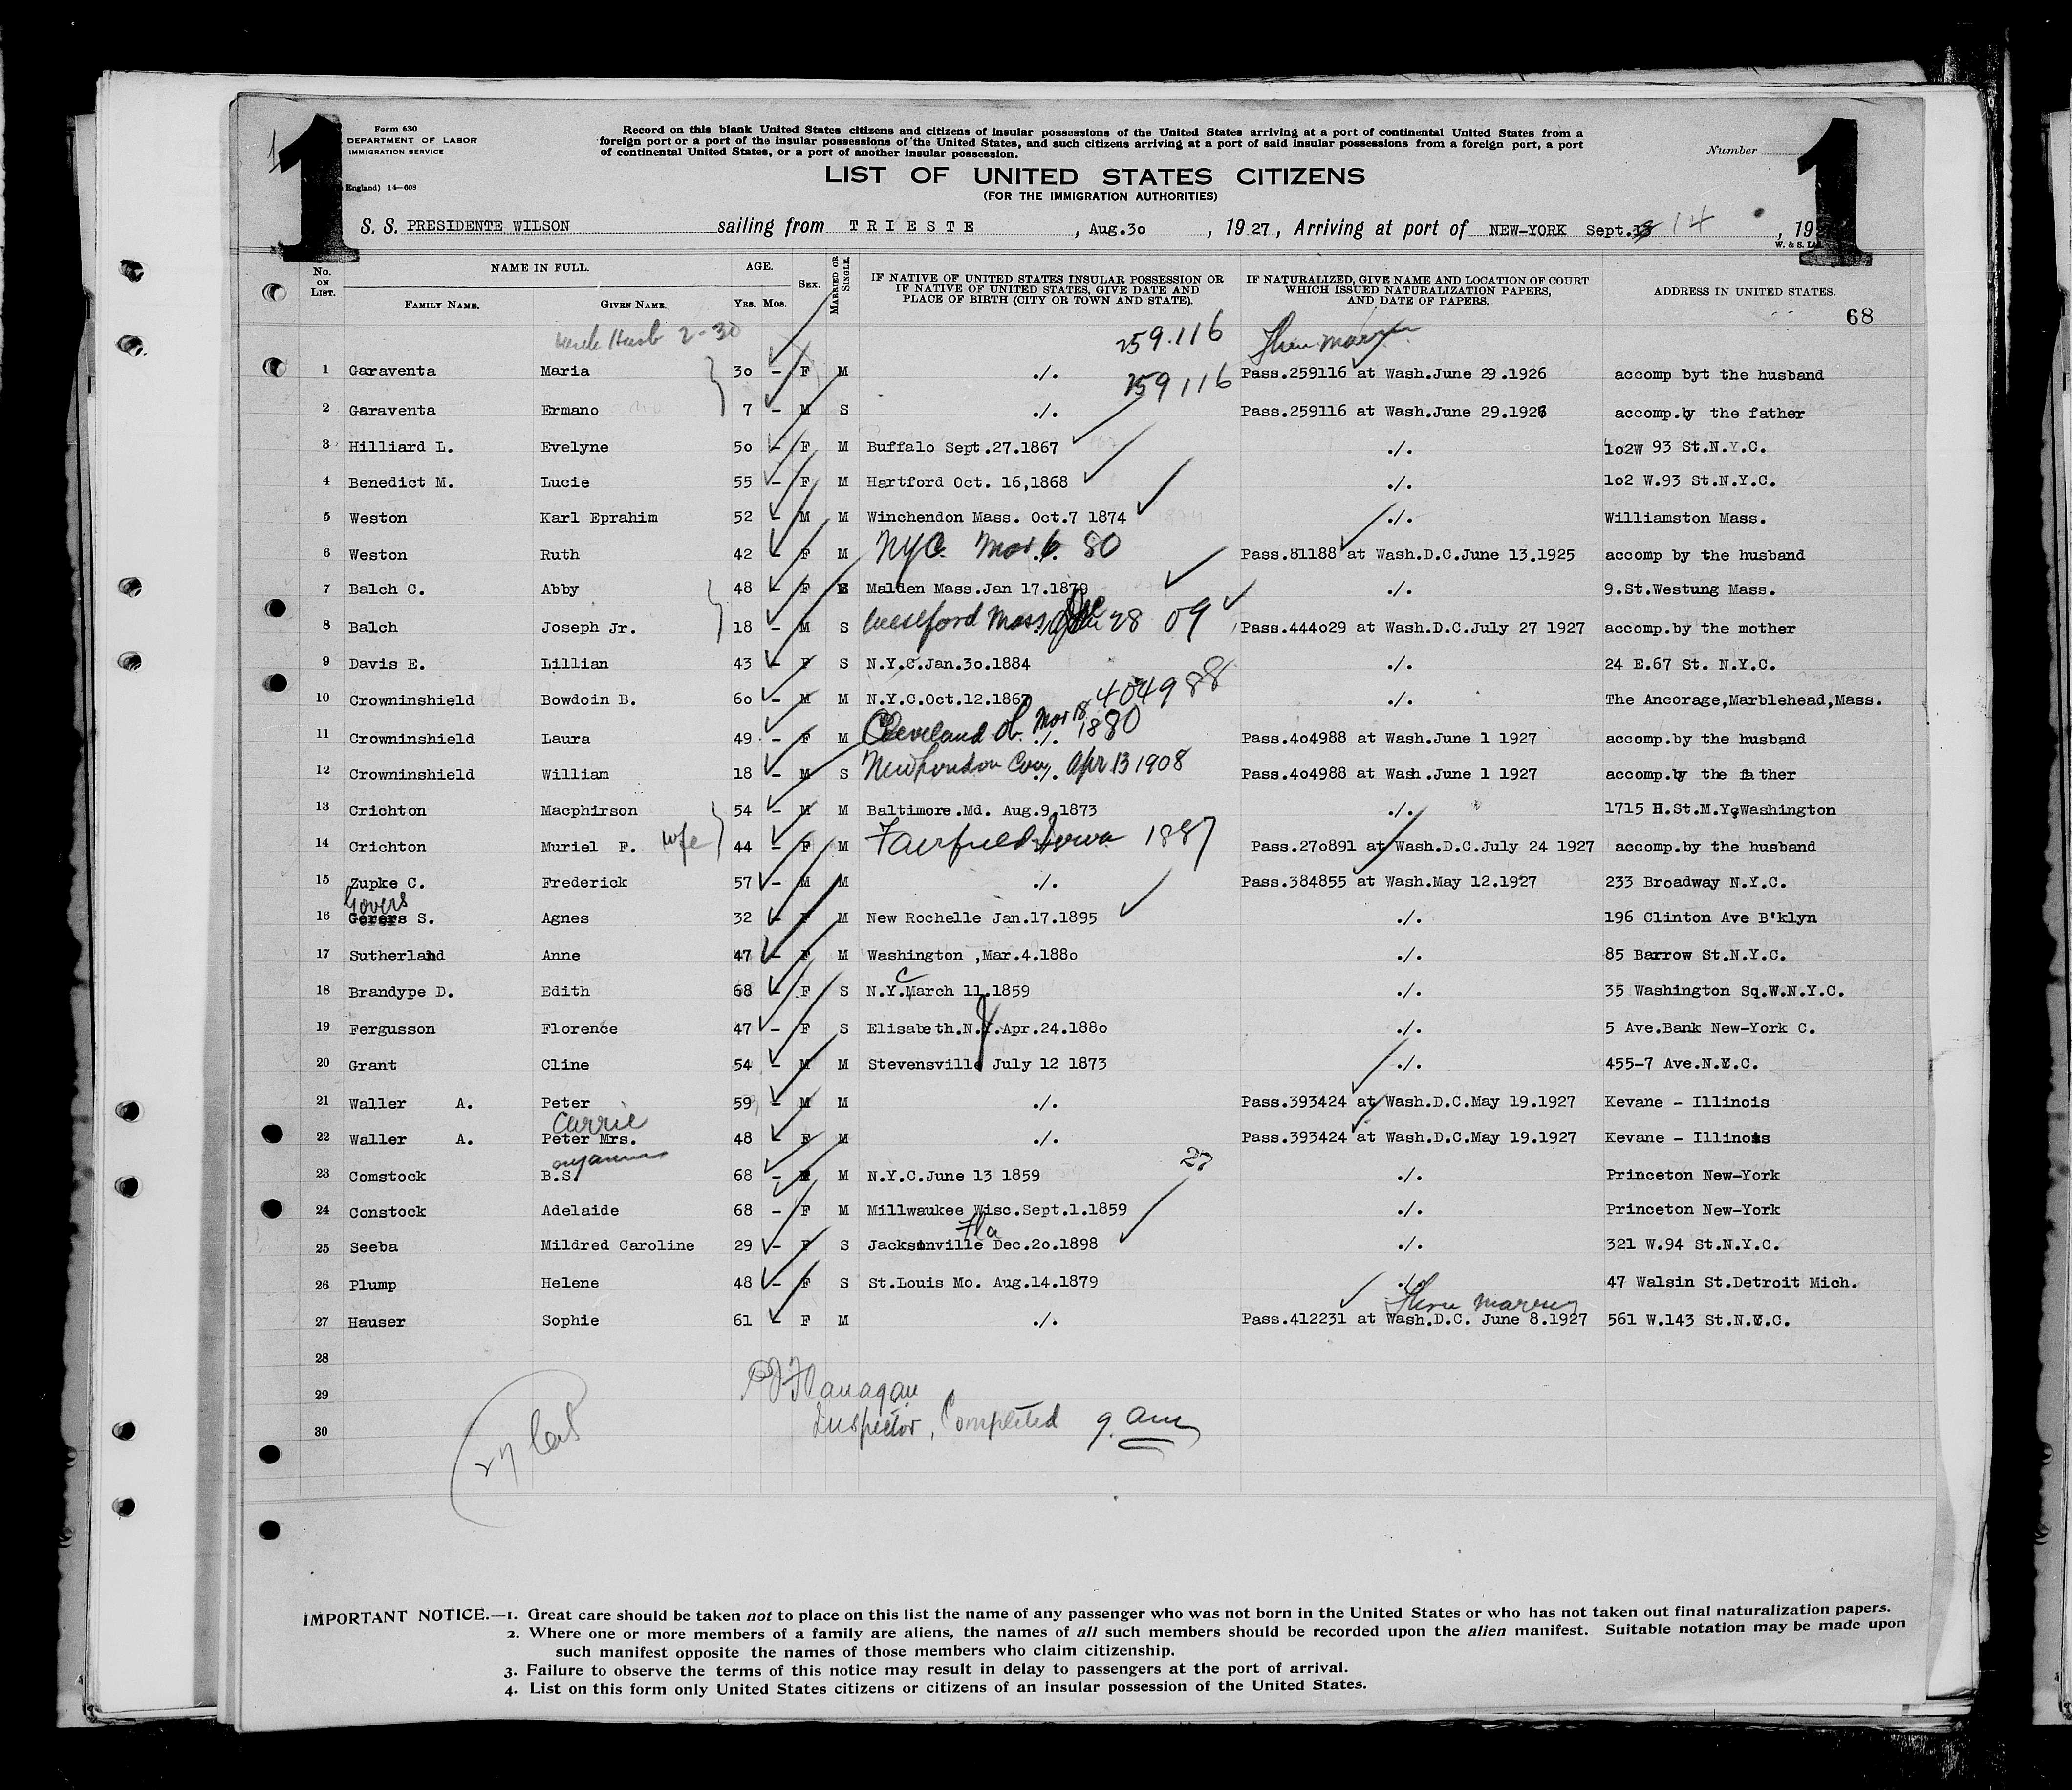 1 1
Form 630
DEPARTMENT OF LABOR
IMMIGRATION SERVICE
England) 14—608
Record on this blank United States citizens and citizens of insular possessions of the United States arriving at a port of continental United States from a
foreign port or a port of the insular possessions of the United States, and such citizens arriving at a port of said insular possessions from a foreign port, a port
of continental United States, or a port of another insular possession.
Number
LIST OF UNITED STATES CITIZENS
(FOR THE IMMIGRATION AUTHORITIES)
S. S. PRESIDENTE WILSON sailing from TRIESTE, Aug.30, 1927, Arriving at port of NEW-YORK Sept. 14, 19
W. & S. Ltd.
No. ON LIST. NAME IN FULL. AGE. SEX. MARRIED OR SINGLE. IF NATIVE OF UNITED STATES INSULAR POSSESSION OR IF NATIVE OF UNITED STATES, GIVE DATE AND PLACE OF BIRTH (CITY OR TOWN AND STATE). IF NATURALIZED, GIVE NAME AND LOCATION OF COURT WHICH ISSUED NATURALIZATION PAPERS, AND DATE OF PAPERS. ADDRESS IN UNITED STATES.
FAMILY NAME. GIVEN NAME. YRS. MOS.
68
Husb 2-30 259.116
1 Garaventa Maria 30 - F M ./. Pass.259116 at Wash.June 29.1926 accomp byt the husband
259116
2 Garaventa Ermano 7 - M S ./. Pass.259116 at Wash.June 29.1926 accomp.by the father
3 Hilliard L. Evelyne 50 - F M Buffalo Sept.27.1867 ./. 102W 93 St.N.Y.C.
4 Benedict M. Lucie 55 - F M Hartford Oct. 16,1868 ./. 102 W.93 St.N.Y.C.
5 Weston Karl Eprahim 52 - M M Winchendon Mass. Oct.7 1874 ./. Williamston Mass.
6 Weston Ruth 42 - F M NYC. Mar. 6 80 Pass.81188 at Wash.D.C.June 13.1925 accomp by the husband
7 Balch C. Abby 48 - F M Malden Mass.Jan 17.1879 ./. 9.St.Westung Mass.
8 Balch Joseph Jr. 18 - M S Mass 28 09 Pass.444029 at Wash.D.C.July 27 1927 accomp.by the mother
9 Davis E. Lillian 43 - F S N.Y.C.Jan.30.1884 ./. 24 E.67 St. N.Y.C.
10 Crowninshield Bowdoin B. 60 - M M N.Y.C.Oct.12.1867 404988 ./. The Ancorage,Marblehead,Mass.
11 Crowninshield Laura 49 - F M Cleveland O. Mar 18 1880 Pass.404988 at Wash.June 1 1927 accomp.by the husband
12 Crowninshield William 18 - M S New London Conn. Apr 13 1908 Pass.404988 at Wash.June 1 1927 accomp.by the father
13 Crichton Macphirson 54 - M M Baltimore.Md. Aug.9,1873 ./. 1715 H.St.M.Y.Washington
14 Crichton Muriel F. wife 44 - F M Fairfield Iowa 1887 Pass.270891 at Wash.D.C.July 24 1927 accomp.by the husband
15 Zupke C. Frederick 57 - M M ./. Pass.384855 at Wash.May 12.1927 233 Broadway N.Y.C.
Govers
16 Gorers S. Agnes 32 - F M New Rochelle Jan.17.1895 ./. 196 Clinton Ave B'klyn
17 Sutherland Anne 47 - F M Washington ,Mar.4.1880 ./. 85 Barrow St.N.Y.C.
18 Brandype D. Edith 68 - F S N.Y.C March 11.1859 ./. 35 Washington Sq.W.N.Y.C.
19 Fergusson Florence 47 - F S Elisabeth.N.J.Apr.24.1880 ./. 5 Ave.Bank New-York C.
20 Grant Cline 54 - M M Stevensville July 12 1873 ./. 455-7 Ave.N.Y.C.
21 Waller A. Peter 59 - M M ./. Pass.393424 at Wash.D.C.May 19.1927 Kevane - Illinois
Carrie
22 Waller A. Peter Mrs. 48 - F M ./. Pass.393424 at Wash.D.C.May 19.1927 Kevane - Illinois
27
23 Comstock B.S. 68 - M M N.Y.C.June 13 1859 ./. Princeton New-York
24 Constock Adelaide 68 - F M Millwaukee Wisc.Sept.1.1859 ./. Princeton New-York
Fla
25 Seeba Mildred Caroline 29 - F S Jacksonville Dec.20.1898 ./. 321 W.94 St.N.Y.C.
26 Plump Helene 48 - F S St.Louis Mo. Aug.14.1879 ./. 47 Walsin St.Detroit Mich.
27 Hauser Sophie 61 - F M ./. Pass.412231 at Wash.D.C. June 8.1927 561 W.143 St.N.Y.C.
28
29 Flanagan
30 Inspector, Completed 9. am
27
IMPORTANT NOTICE.—1. Great care should be taken not to place on this list the name of any passenger who was not born in the United States or who has not taken out final naturalization papers.
2. Where one or more members of a family are aliens, the names of all such members should be recorded upon the alien manifest. Suitable notation may be made upon
such manifest opposite the names of those members who claim citizenship.
3. Failure to observe the terms of this notice may result in delay to passengers at the port of arrival.
4. List on this form only United States citizens or citizens of an insular possession of the United States.